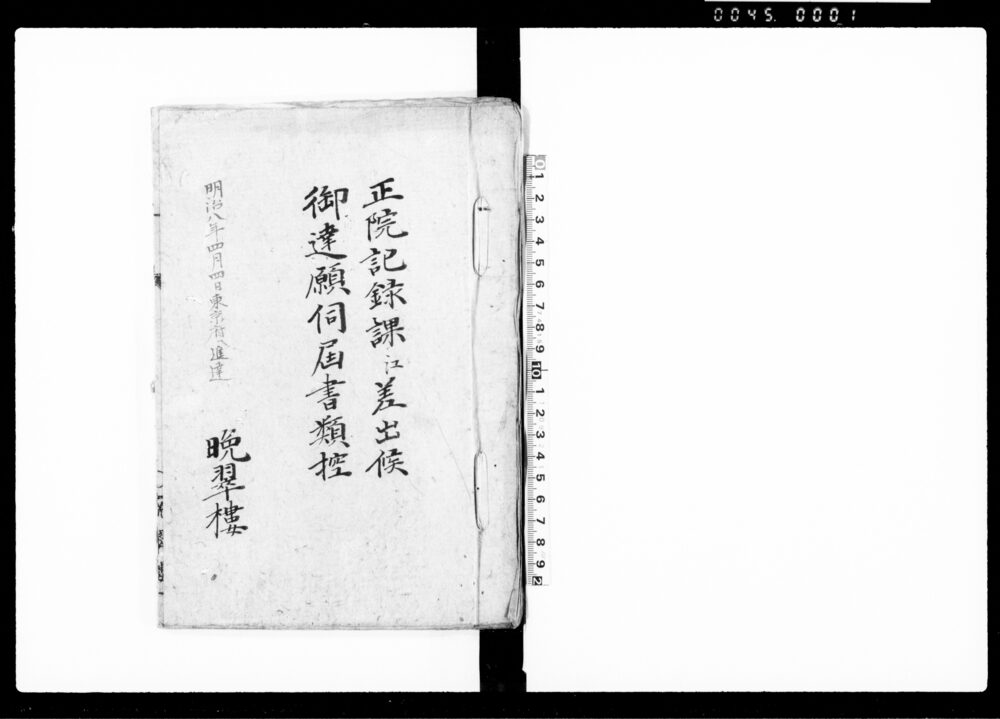 0045. 0001
正院記録課江差出候
御達願伺届書類控
明治八年四月四日東京府へ進達
晩翠樓
0 1 2 3 4 5 6 7 8 9 10 1 2 3 4 5 6 7 8 9 2